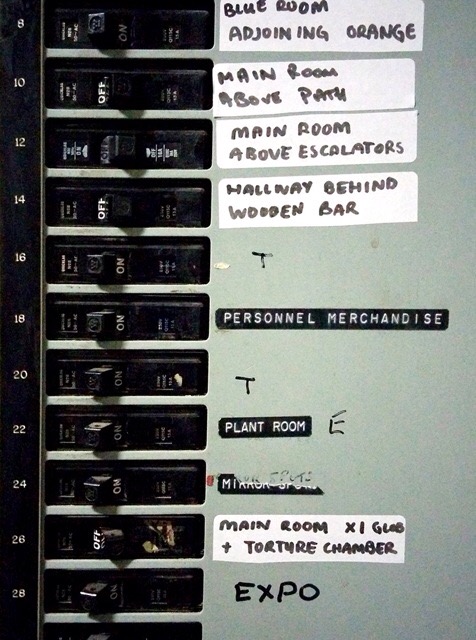 8
BLUE ROOM
ON
ADJOINING ORANGE
10
OFF
MAIN ROOM
ABOVE PATH
12
MAIN ROOM
ABOVE ESCALATORS
14
OFF
HALLWAY BEHIND
WOODEN BAR
16
ON
T
18
ON
PERSONNEL MERCHANDISE
20
ON
T
22
ON
PLANT ROOM
E
24
ON
MIRROR SPOTS
26
OFF
MAIN ROOM X1 GLOB
+ TORTURE CHAMBER
28
ON
EXPO